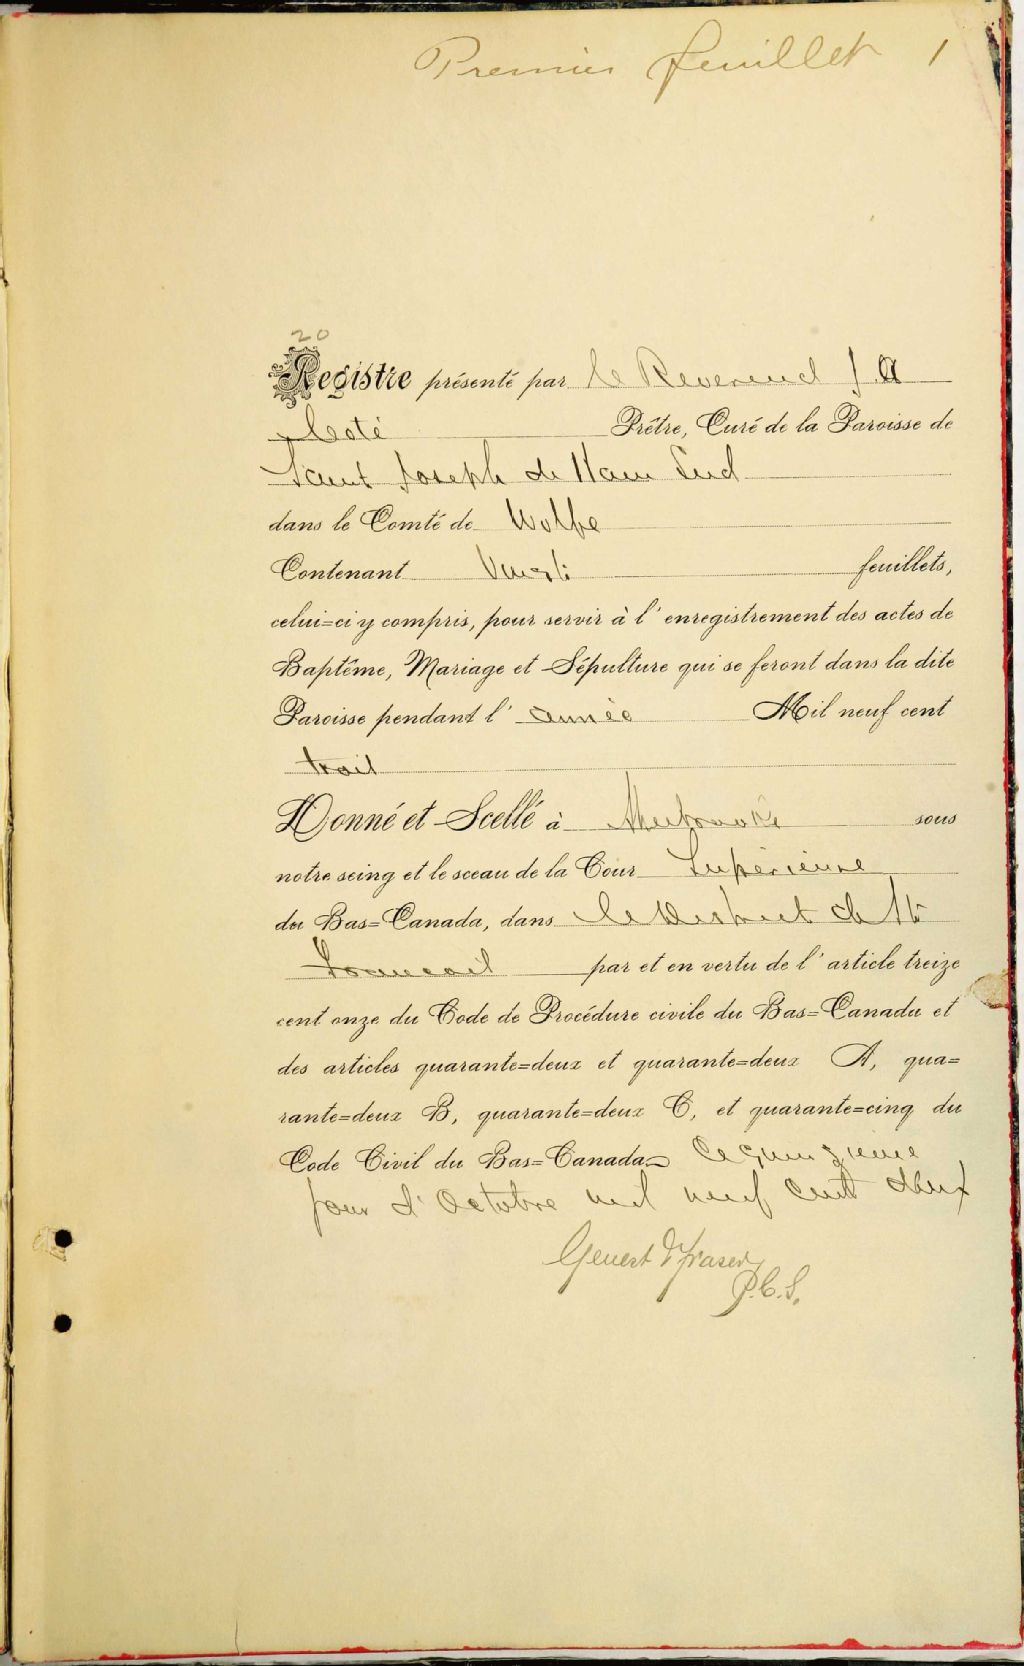 Premier feuillet 1
20
Registre présenté par le Reverend J. A
Coté Prêtre, Curé de la Paroisse de
Saint Joseph de Ham Sud
dans le Comté de Wolfe
Contenant Vingt feuillets,
celui=ci y compris, pour servir à l' enregistrement des actes de
Baptême, Mariage et Sépulture qui se feront dans la dite
Paroisse pendant l' année Mil neuf cent
trois
Donné et Scellé à Sherbrooke sous
notre seing et le sceau de la Cour Supérieure
du Bas=Canada, dans le District de St
Francois par et en vertu de l' article treize
cent onze du Code de Procédure civile du Bas=Canada et
des articles quarante=deux et quarante=deux A, qua=
rante=deux B, quarante=deux C, et quarante=cinq du
Code Civil du Bas=Canada ce quinzieme
jour d' Octobre mil neuf cent deux
Genest & Fraser
P.C.S.